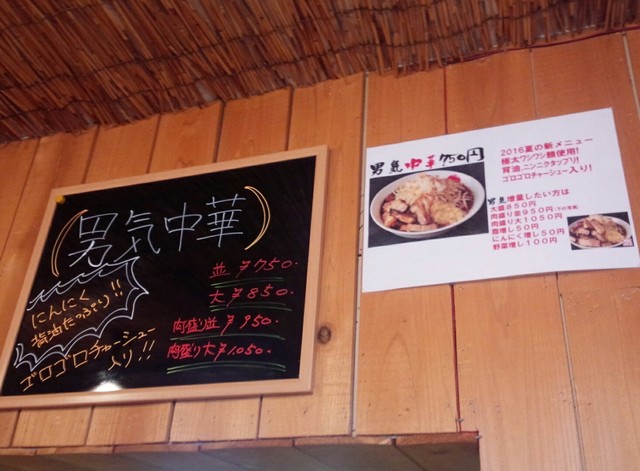 (男気中華)
にんにく
背油たっぷり!!
ゴロゴロチャーシュー
入り!!
並 ¥750.
大 ¥850.
肉盛り並 ¥950.
肉盛り大 ¥1.050.
男気中華750円
2016夏の新メニュー
極太ワシワシ麺使用!
背油、ニンニクタップリ!
ゴロゴロチャーシュー入り!
男気増量したい方は
大盛850円
肉盛り並950円
肉盛り大1050円
麺増し50円
にんにく増し50円
野菜増し100円